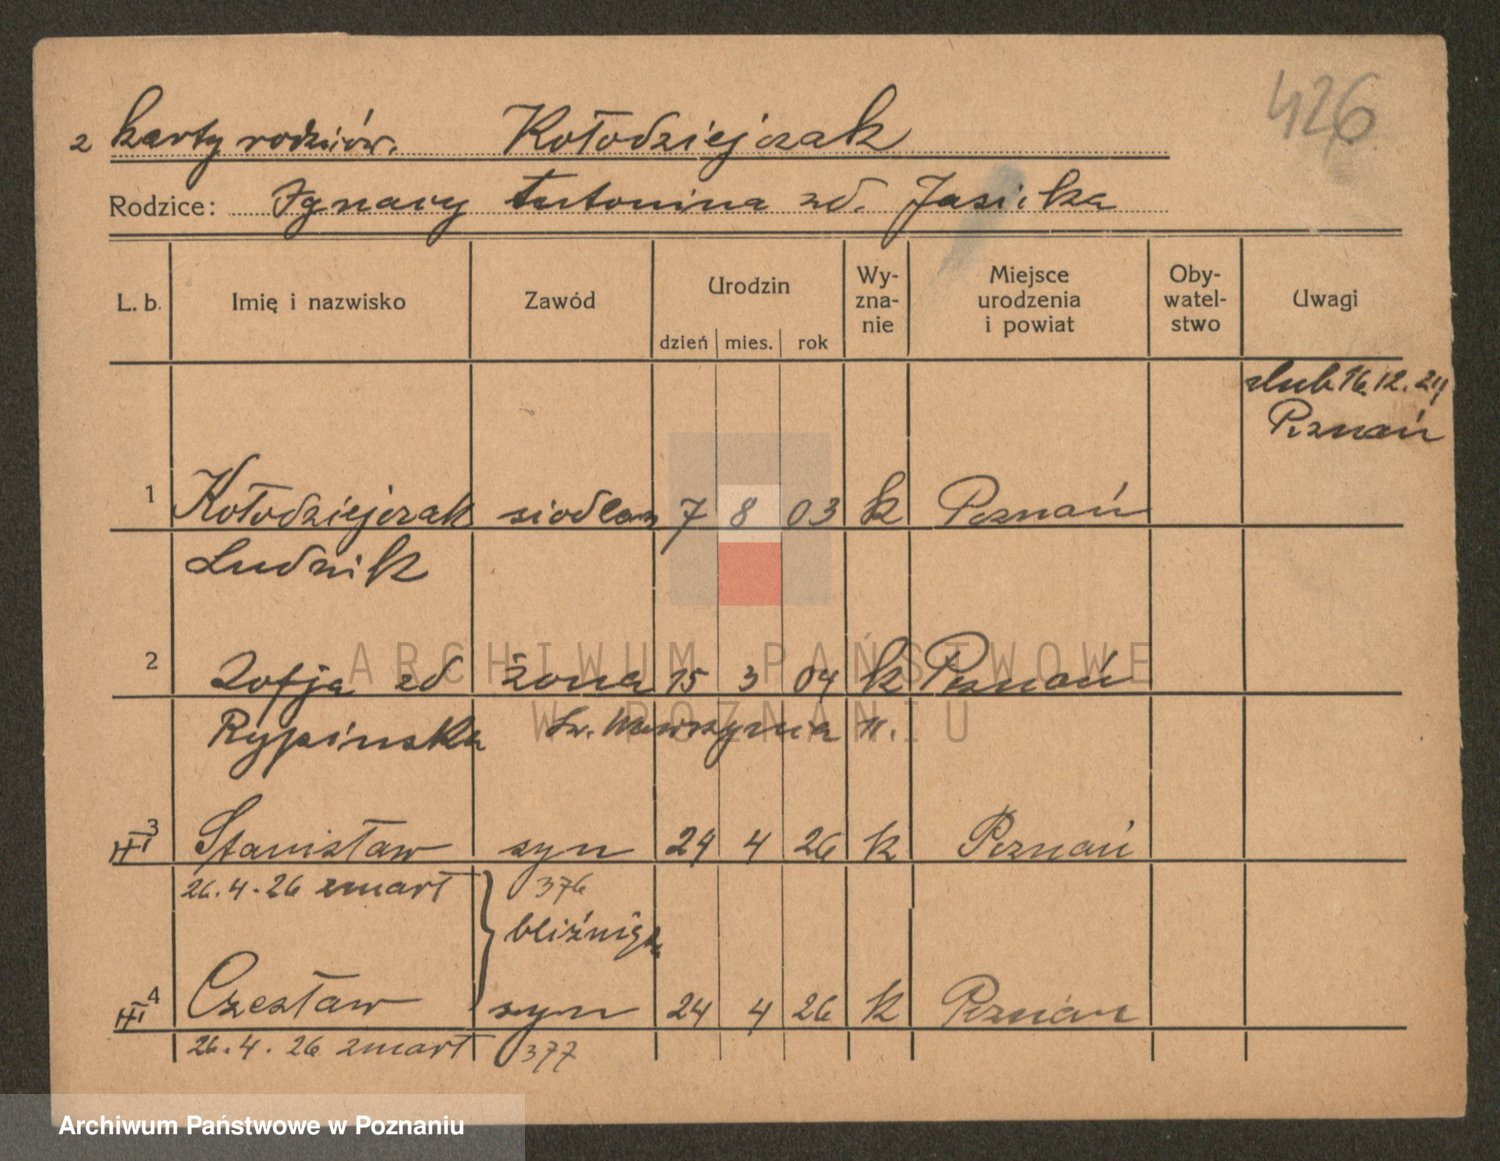 426
z karty rodziców. Kołodziejczak
Rodzice: Ignacy Antonina zd. Jasicka
L. b. Imię i nazwisko Zawód Urodzin dzień mies. rok Wy-zna-nie Miejsce urodzenia i powiat Oby-watel-stwo Uwagi
ślub 16.12.24
Poznań
1 Kołodziejczak siodlarz 7 8 03 k Poznań
Ludwik
2 Zofja zd żona 15 3 04 k Poznań
Rypińska Św. Wawrzyńca 11.
3 Stanisław syn 24 4 26 k Poznań
26.4.26 zmarł 376
bliźnięta
4 Czesław syn 24 4 26 k Poznań
26.4.26 zmarł 377
ARCHIWUM PAŃSTWOWE
W POZNANIU
Archiwum Państwowe w Poznaniu